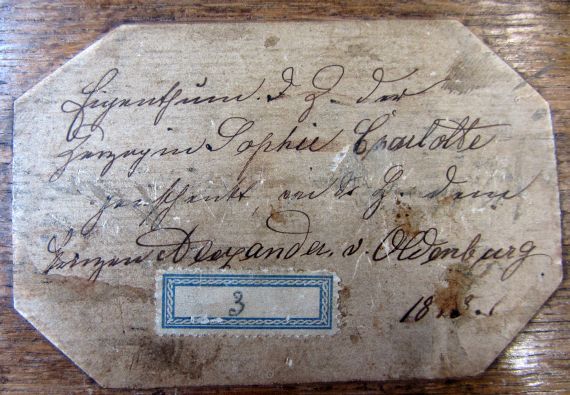 Eigenthum. I. H. der
Herzogin Sophie Charlotte
geschenkt H. dem
Prinzen Alexander. v. Oldenburg
3